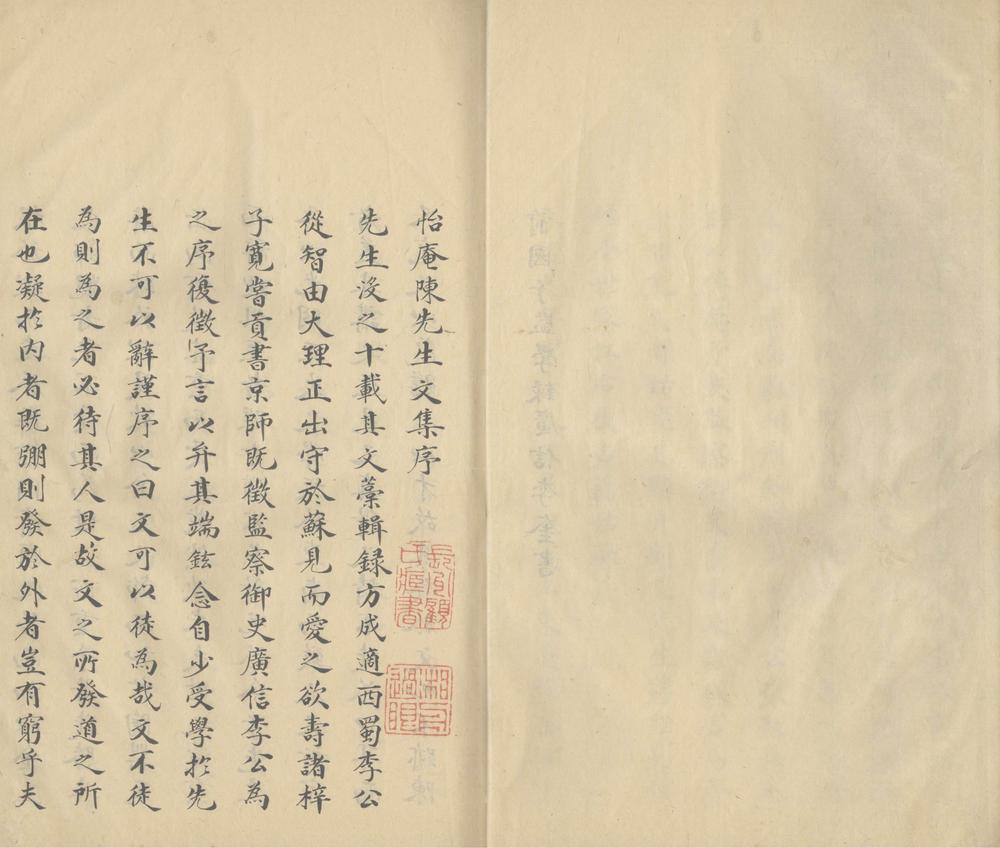 怡庵陳先生文集序
先生沒之十載其文藁輯録方成適西蜀李公
從智由大理正出守於蘇見而愛之欲壽諸梓
子寬嘗貢書京師既徵監察御史廣信李公為
之序復徵予言以弁其端鉉念自少受學於先
生不可以辭謹序之曰文可以徒為哉文不徒
為則為之者必待其人是故文之所發道之所
在也凝於内者既弸則發於外者豈有窮乎夫